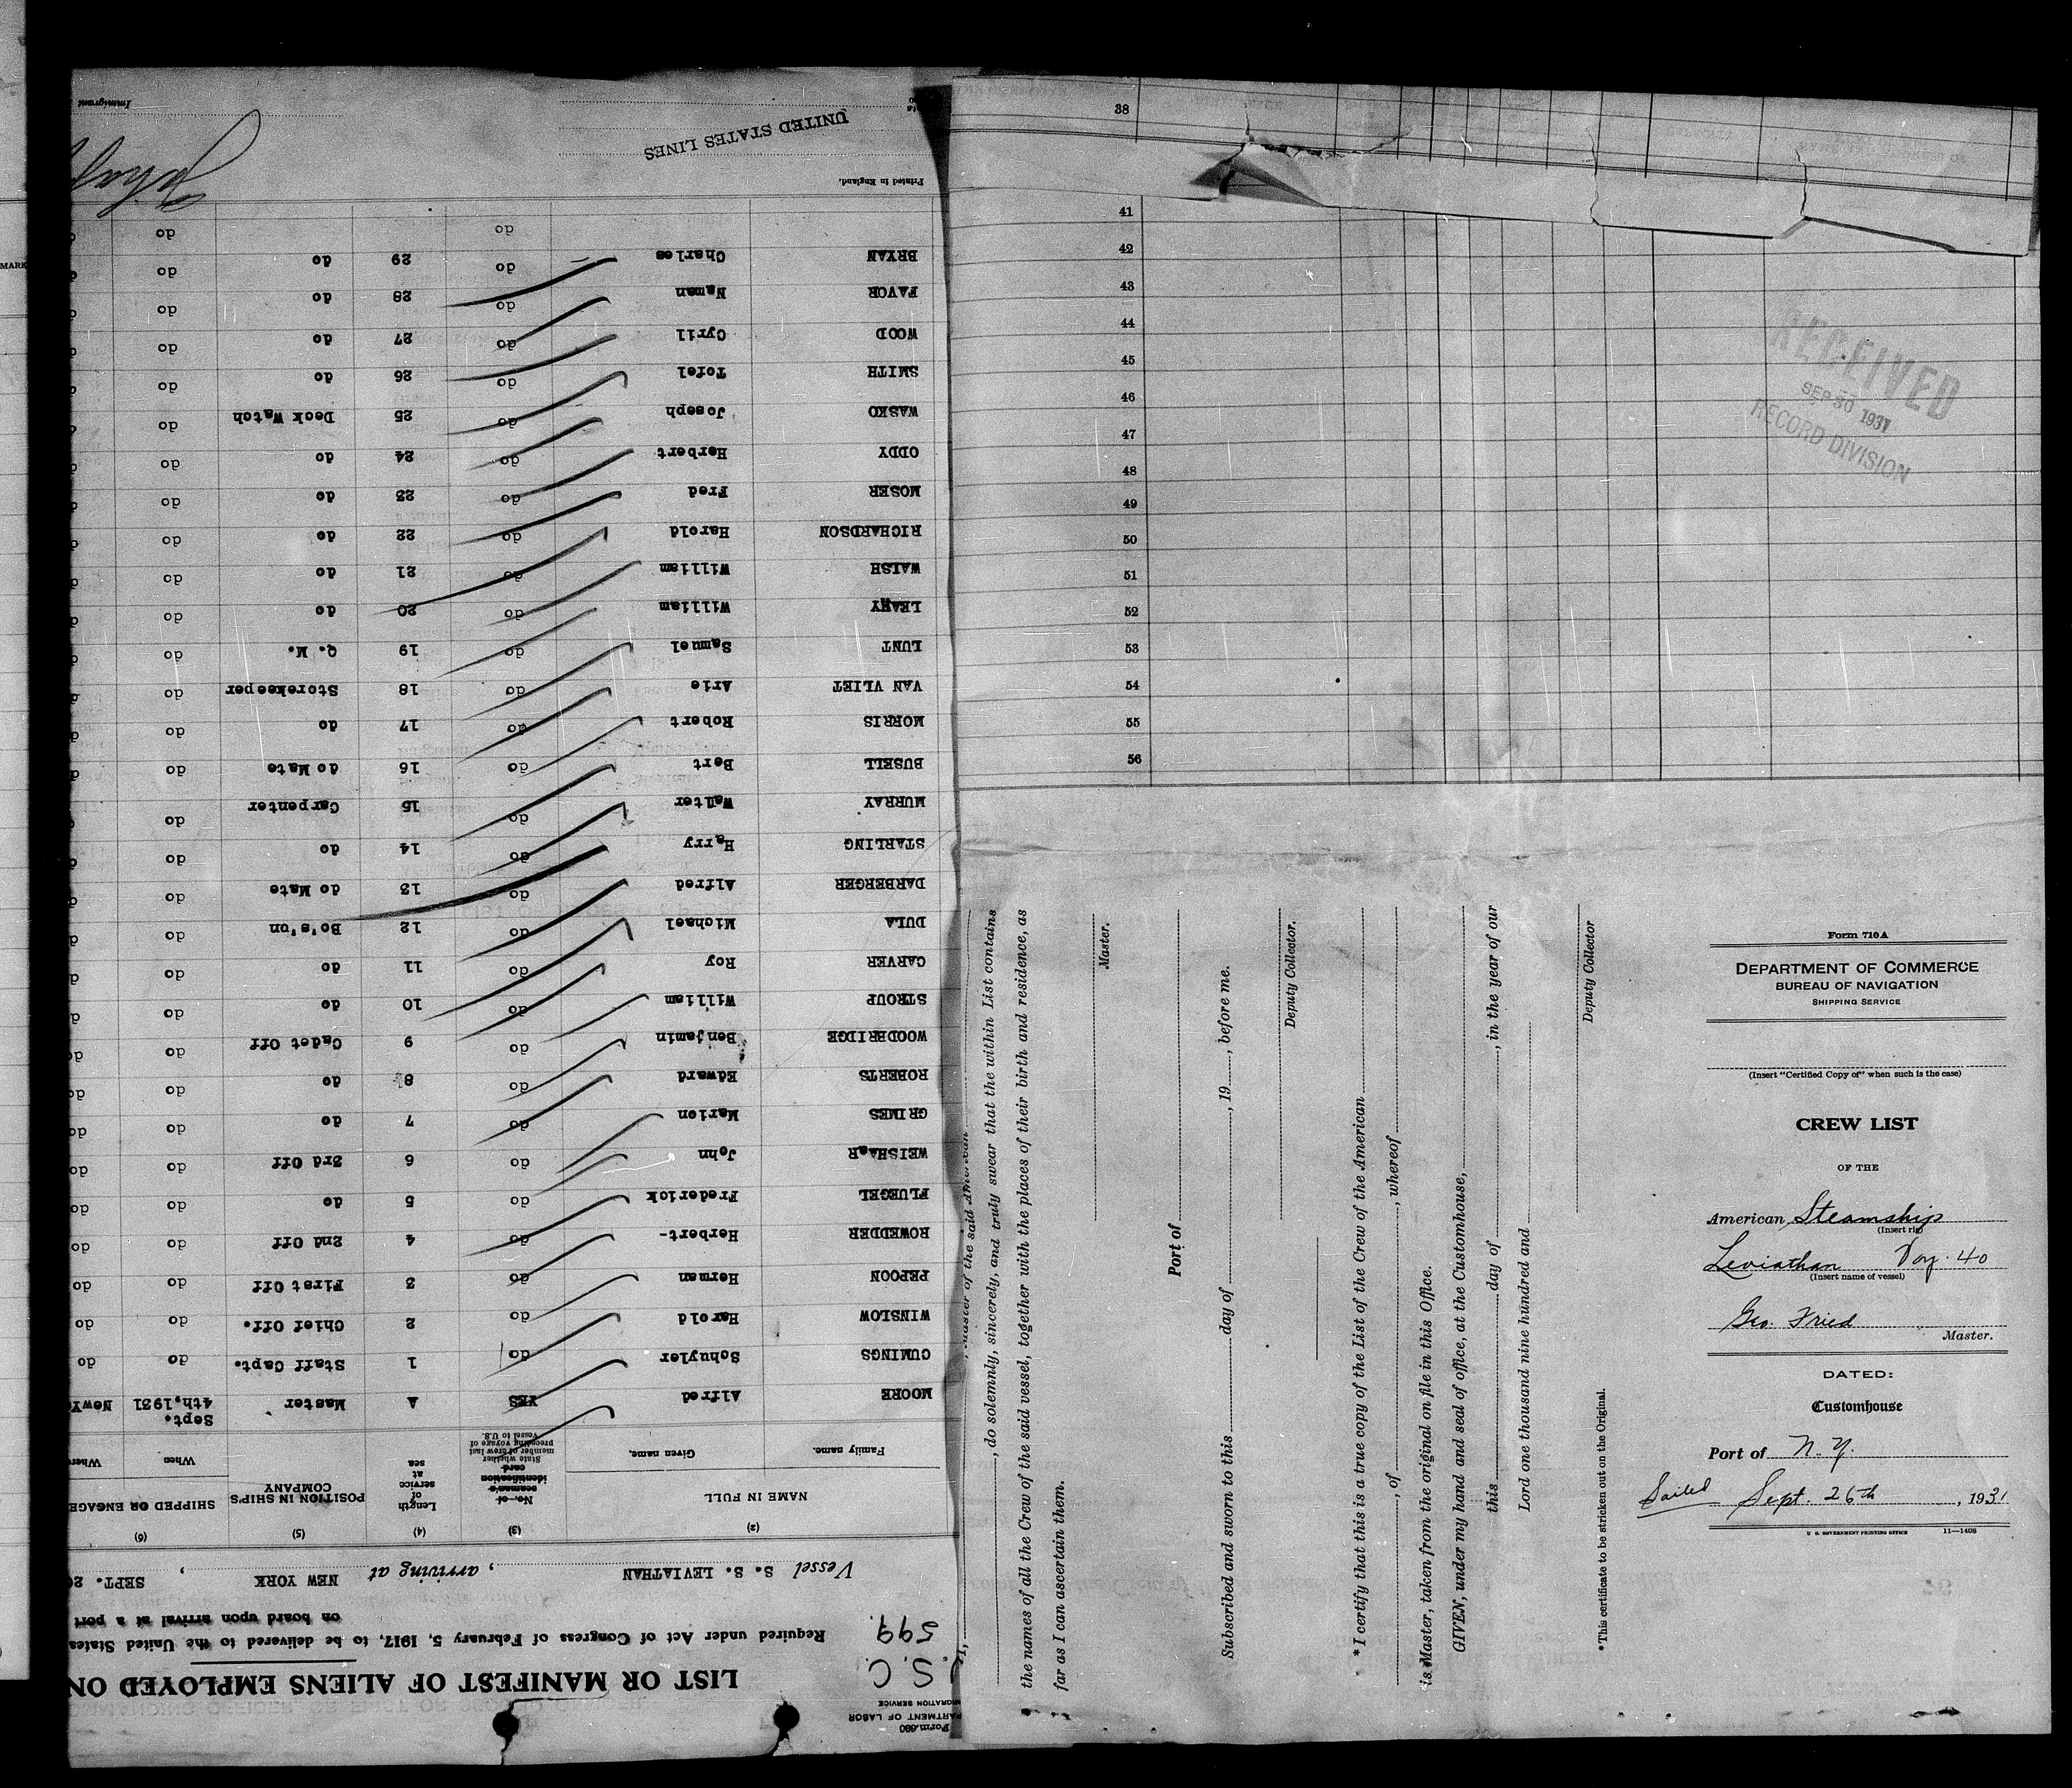 Form 680
PARTMENT OF LABOR
MIGRATION SERVICE
LIST OR MANIFEST OF ALIENS EMPLOYED ON
U.S.C.
599
Required under Act of Congress of February 5, 1917, to be delivered to the United States
on board upon arrival at a port
Vessel S. S. LEVIATHAN, arriving at NEW YORK, SEPT.
(2) (3) (4) (5) (6)
NAME IN FULL No. of seaman's identification card Length of service at sea POSITION IN SHIP'S COMPANY SHIPPED OR ENGAGE
Family name. Given name. State whether member of crew last preceding voyage of vessel to U.S. When Where
MOORE Alfred YES A Master Sept. 4th,1931 NewY
CUMINGS Schuyler do 1 Staff Capt. do do
WINSLOW Harold do 2 Chief Off. do do
PEPOON Herman do 3 First Off do do
ROWEDDER Herbert- do 4 2nd Off do do
FLUEGEL Frederick do 5 do do do
WEISHAAR John do 6 3rd Off do do
GRIMES Marion do 7 do do do
ROBERTS Edward do 8 do do do
WOODRIDGE Benjamin do 9 Cadet Off do do
STROUP William do 10 do do do
CARVER Roy do 11 do do d
DULA Michael do 12 Bo's'un do d
DARBERGER Alfred do 13 do Mate do d
STARLING Harry do 14 do do d
MURRAY Walter do 15 Carpenter do d
BUSELL Bert do 16 do Mate do d
MORRIS Robert do 17 do do d
VAN VLIET Arie do 18 Storekeeper do d
LUNT Samuel do 19 Q. M. do d
LEAHY William do 20 do do d
WALSH William do 21 do do d
RICHARDSON Harold do 22 do do d
MOSER Fred do 23 do do d
ODDY Herbert do 24 do do d
WASKO Joseph do 25 Deck Watch do d
SMITH Tofel do 26 do do d
WOOD Cyril do 27 do do d
FAVOR Naman do 28 do do d
BRYAN Charles do 29 do do d
do do
Printed in England.
UNITED STATES LINES
Immigrant
MARK
38
41
42
43
44
45
46
47
48
49
50
51
52
53
54
55
56
RECEIVED
SEP 30 1931
RECORD DIVISION
, Master of the said American
, do solemnly, sincerely, and truly swear that the within List contains
the names of all the Crew of the said vessel, together with the places of their birth and residence, as
far as I can ascertain them.
Master.
Port of
Subscribed and sworn to this day of , 19 , before me.
Deputy Collector.
*I certify that this is a true copy of the List of the Crew of the American
, of , whereof
is Master, taken from the original on file in this Office.
GIVEN, under my hand and seal of office, at the Customhouse,
this day of , in the year of our
Lord one thousand nine hundred and
Deputy Collector
*This certificate to be stricken out on the Original.
Form 710 A
DEPARTMENT OF COMMERCE
BUREAU OF NAVIGATION
SHIPPING SERVICE
(Insert "Certified Copy of" when such is the case)
CREW LIST
OF THE
American Steamship
(Insert rig)
Leviathan Voy. 40
(Insert name of vessel)
Geo. Fried
Master.
DATED:
Customhouse
Port of N.Y.
Sailed Sept. 26th, 1931
U. S. GOVERNMENT PRINTING OFFICE 11—1408